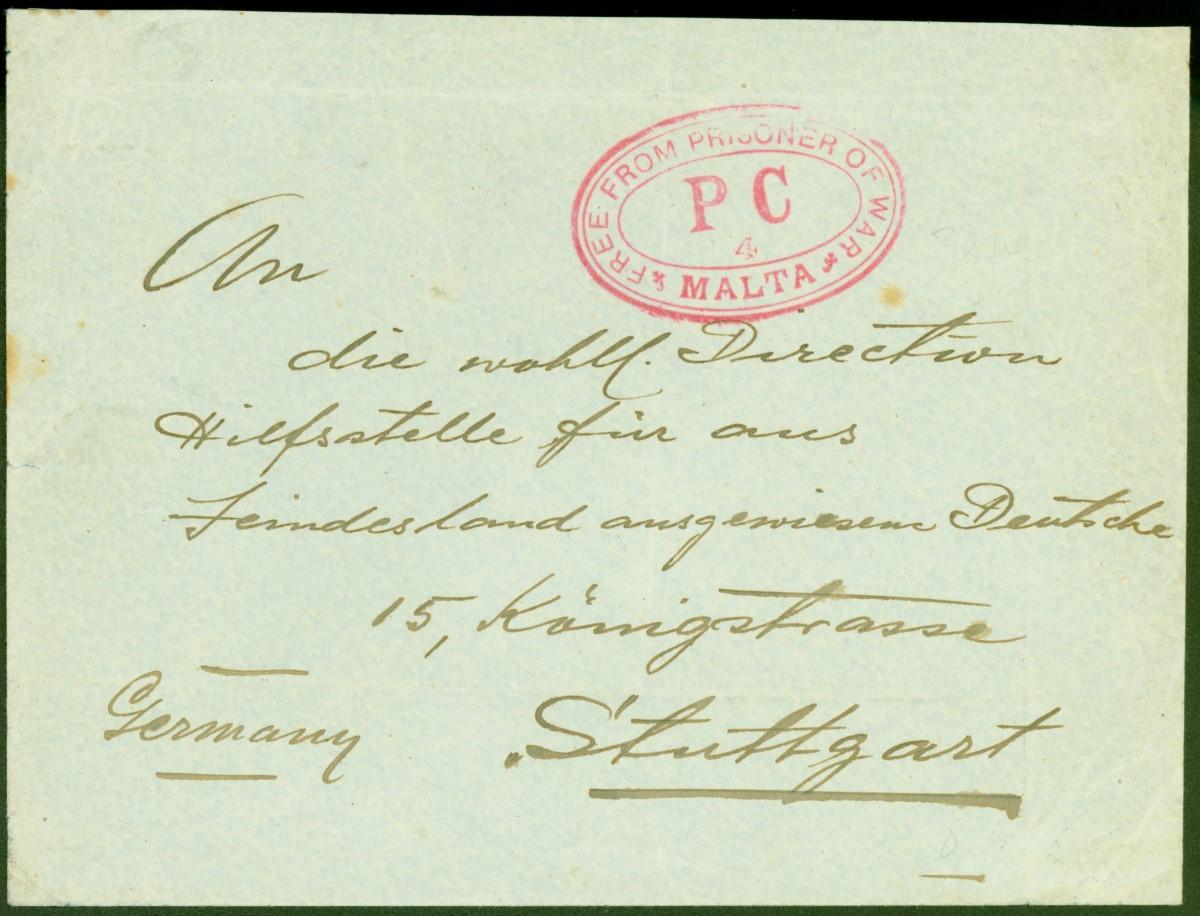 FREE FROM PRISONER OF WAR
P C
4
* MALTA *
An
die wohll. Direction
Hilfsstelle für aus
Feindesland ausgewiesene Deutsche
15, Königstrasse
Germany
Stuttgart